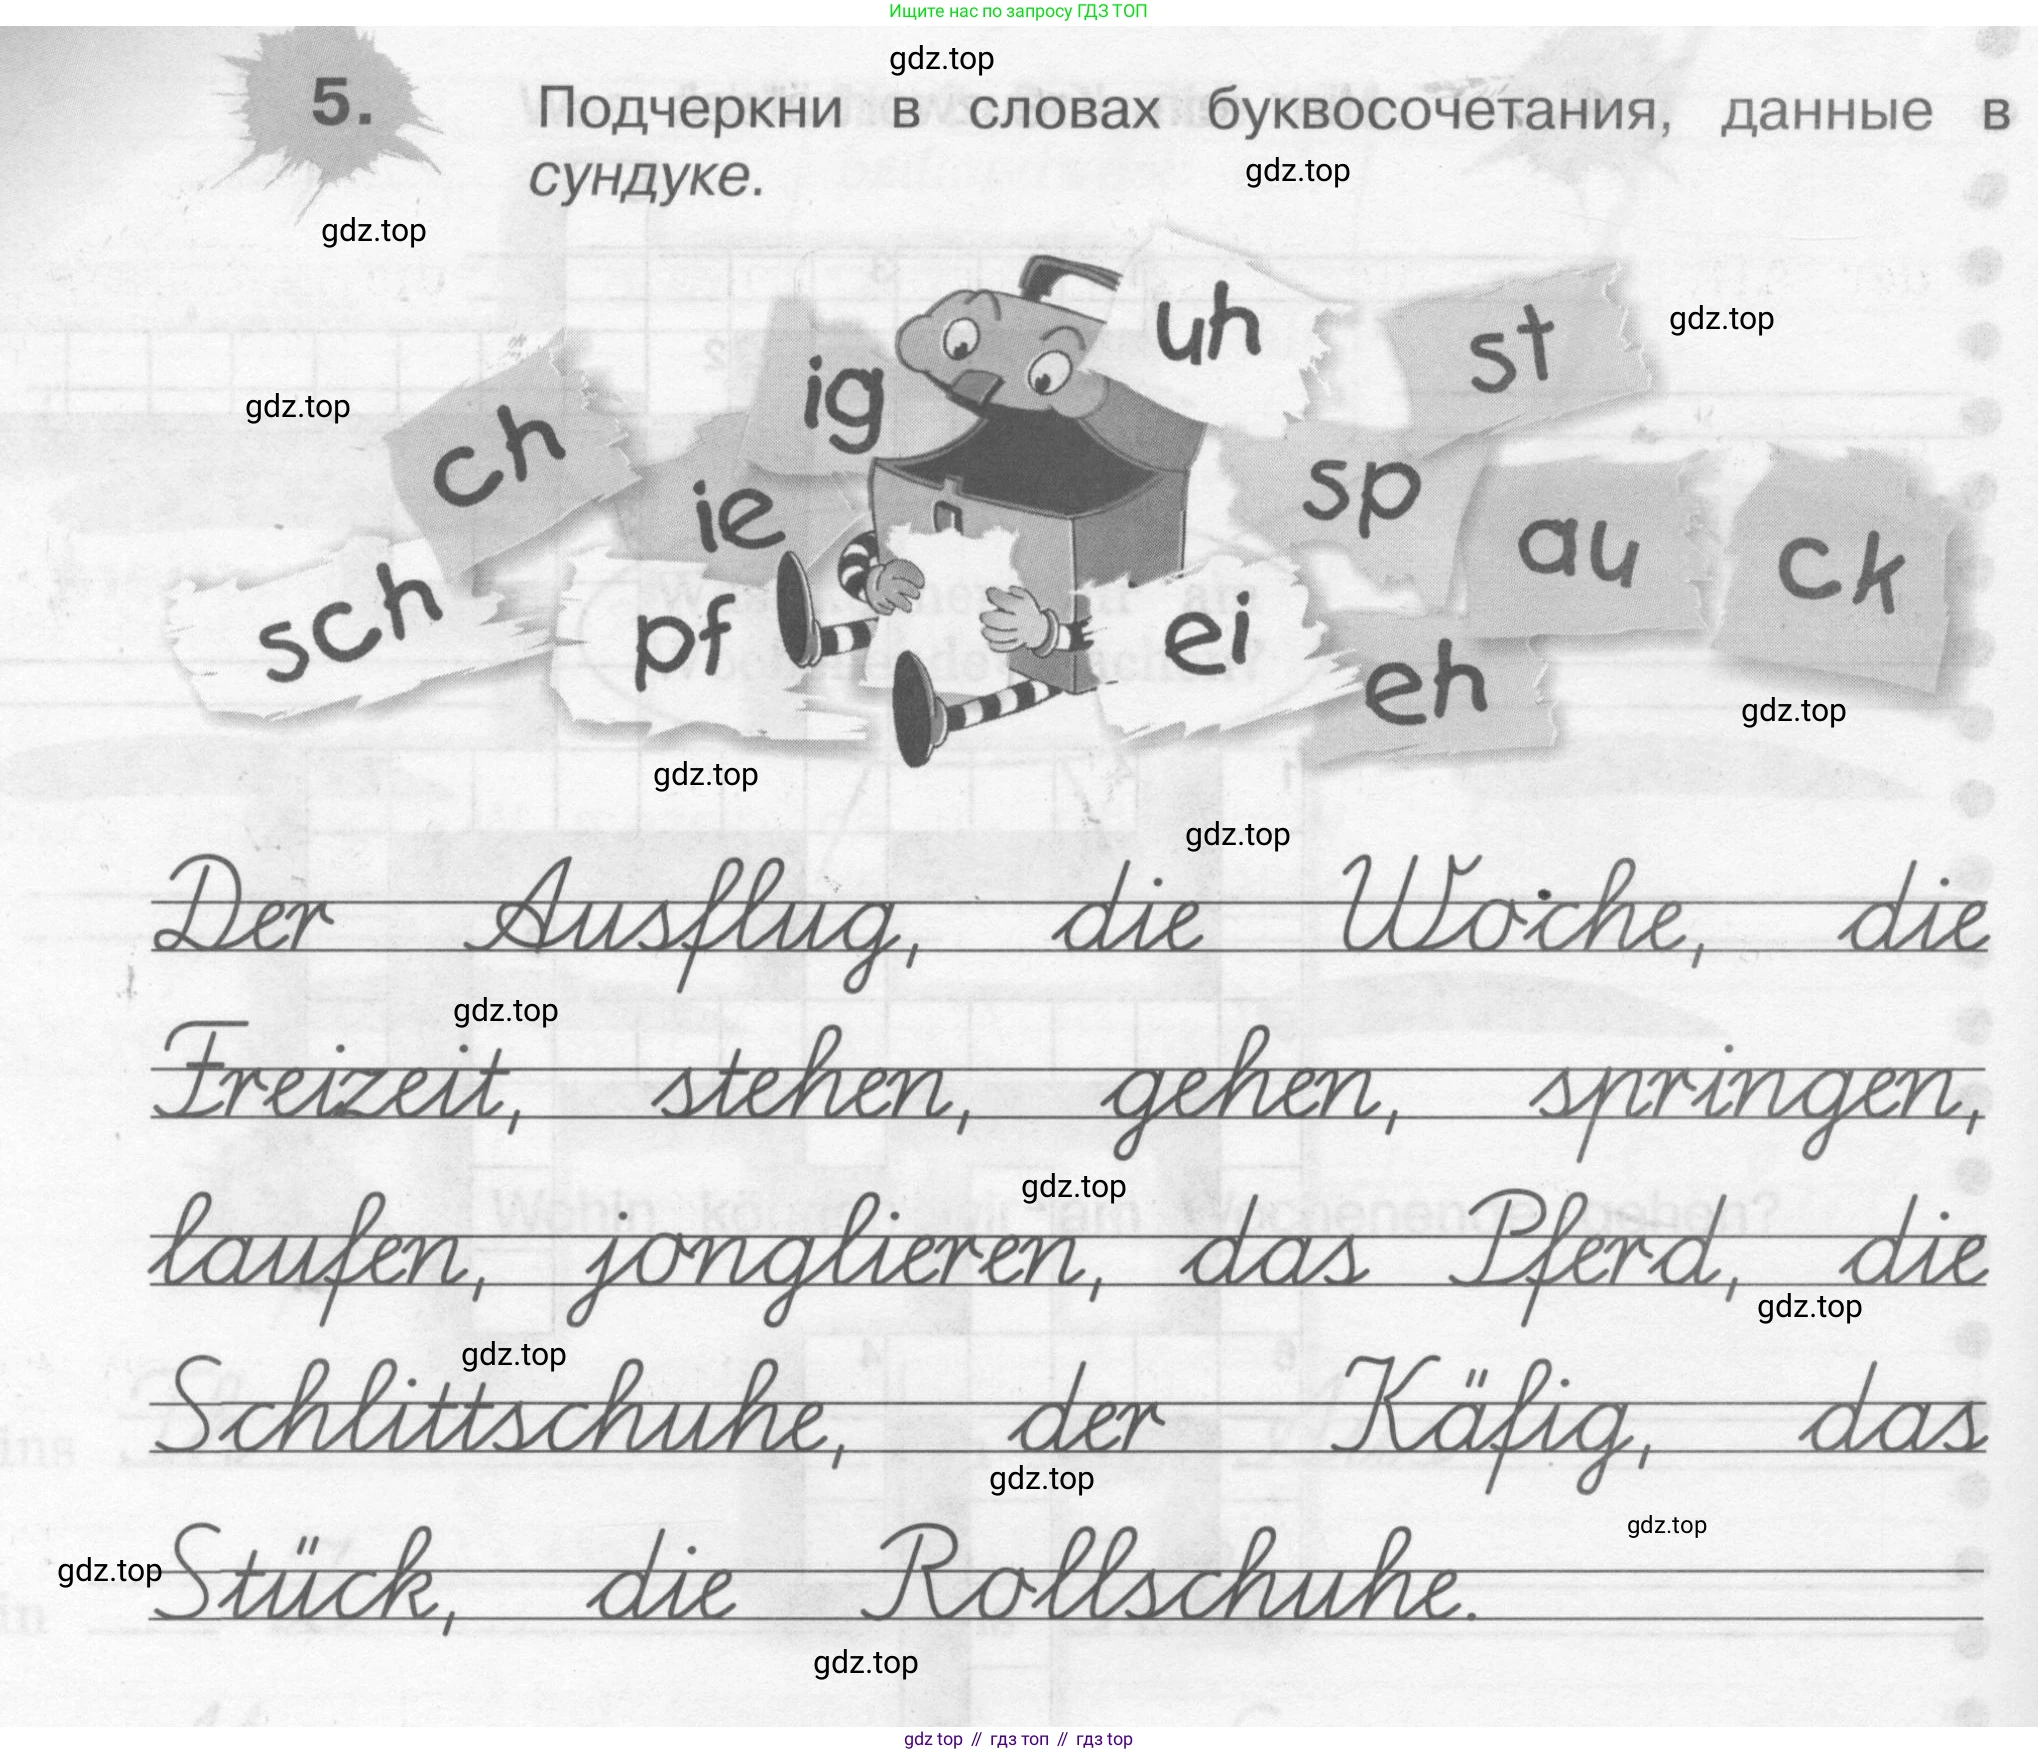 Ищите нас по запросу ГДЗ ТОП
gdz.top
5. Подчеркни в словах буквосочетания, данные в
сундуке.
gdz.top
gdz.top
uh
st
gdz.top
ig
gdz.top
ch
sp
ie
au
ck
sch
pf
ei
eh
gdz.top
gdz.top
gdz.top
Der Ausflug, die Woche, die
gdz.top
Freizeit, stehen, gehen, springen,
gdz.top
laufen, jonglieren, das Pferd, die
gdz.top
gdz.top
Schlittschuhe, der Käfig, das
gdz.top
gdz.top
gdz.top
Stück, die Rollschuhe.
gdz.top
gdz top // гдз топ // гдз top